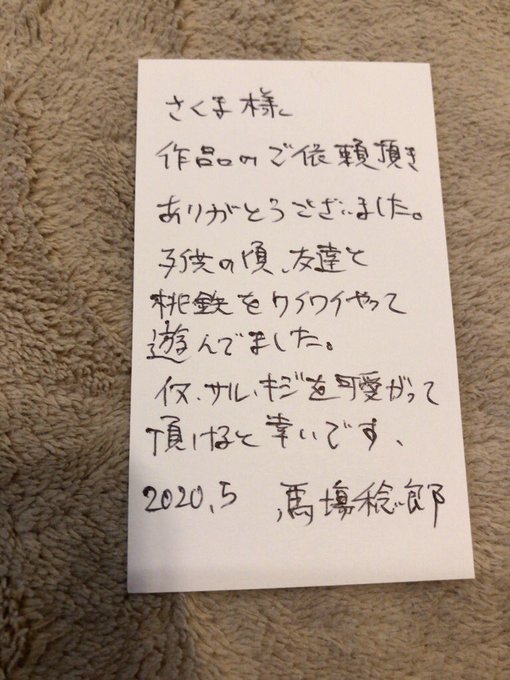 さくま様
作品のご依頼頂き
ありがとうございました。
子供の頃、友達と
桃鉄をワイワイやって
遊んでました。
イヌ、サル、キジを可愛がって
頂けると幸いです、
2020.5 馬場稔郎